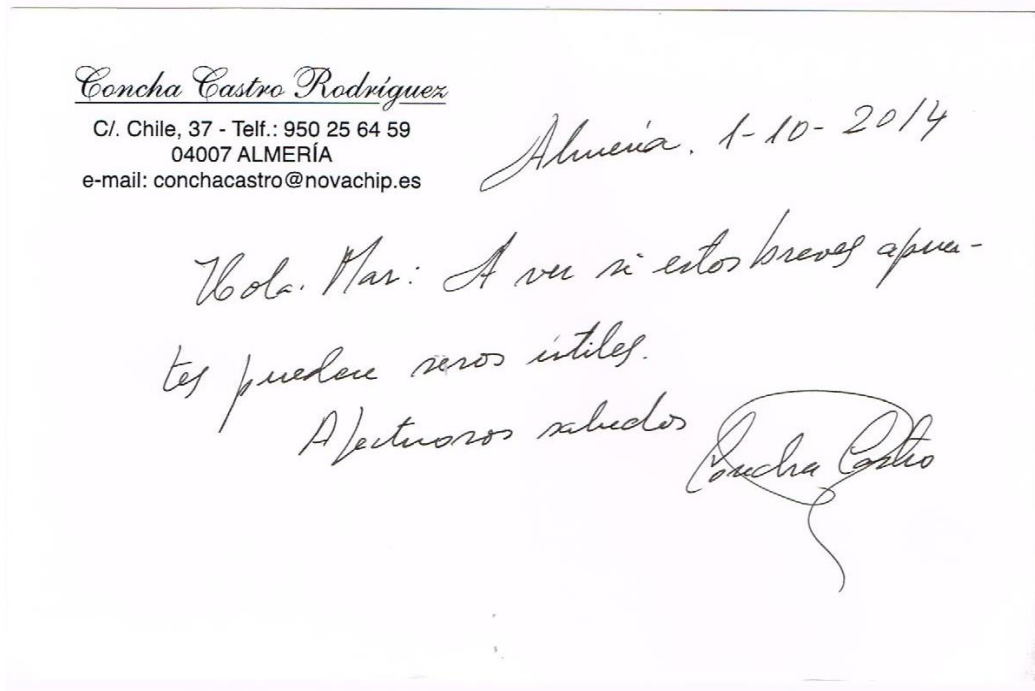 Concha Castro Rodríguez
C/. Chile, 37 - Telf.: 950 25 64 59
04007 ALMERÍA
e-mail: conchacastro@novachip.es
Almería. 1-10-2014
Hola. Mar: A ver si estos breves apun-
tes pueden seros útiles.
Afectuosos saludos
Concha Castro